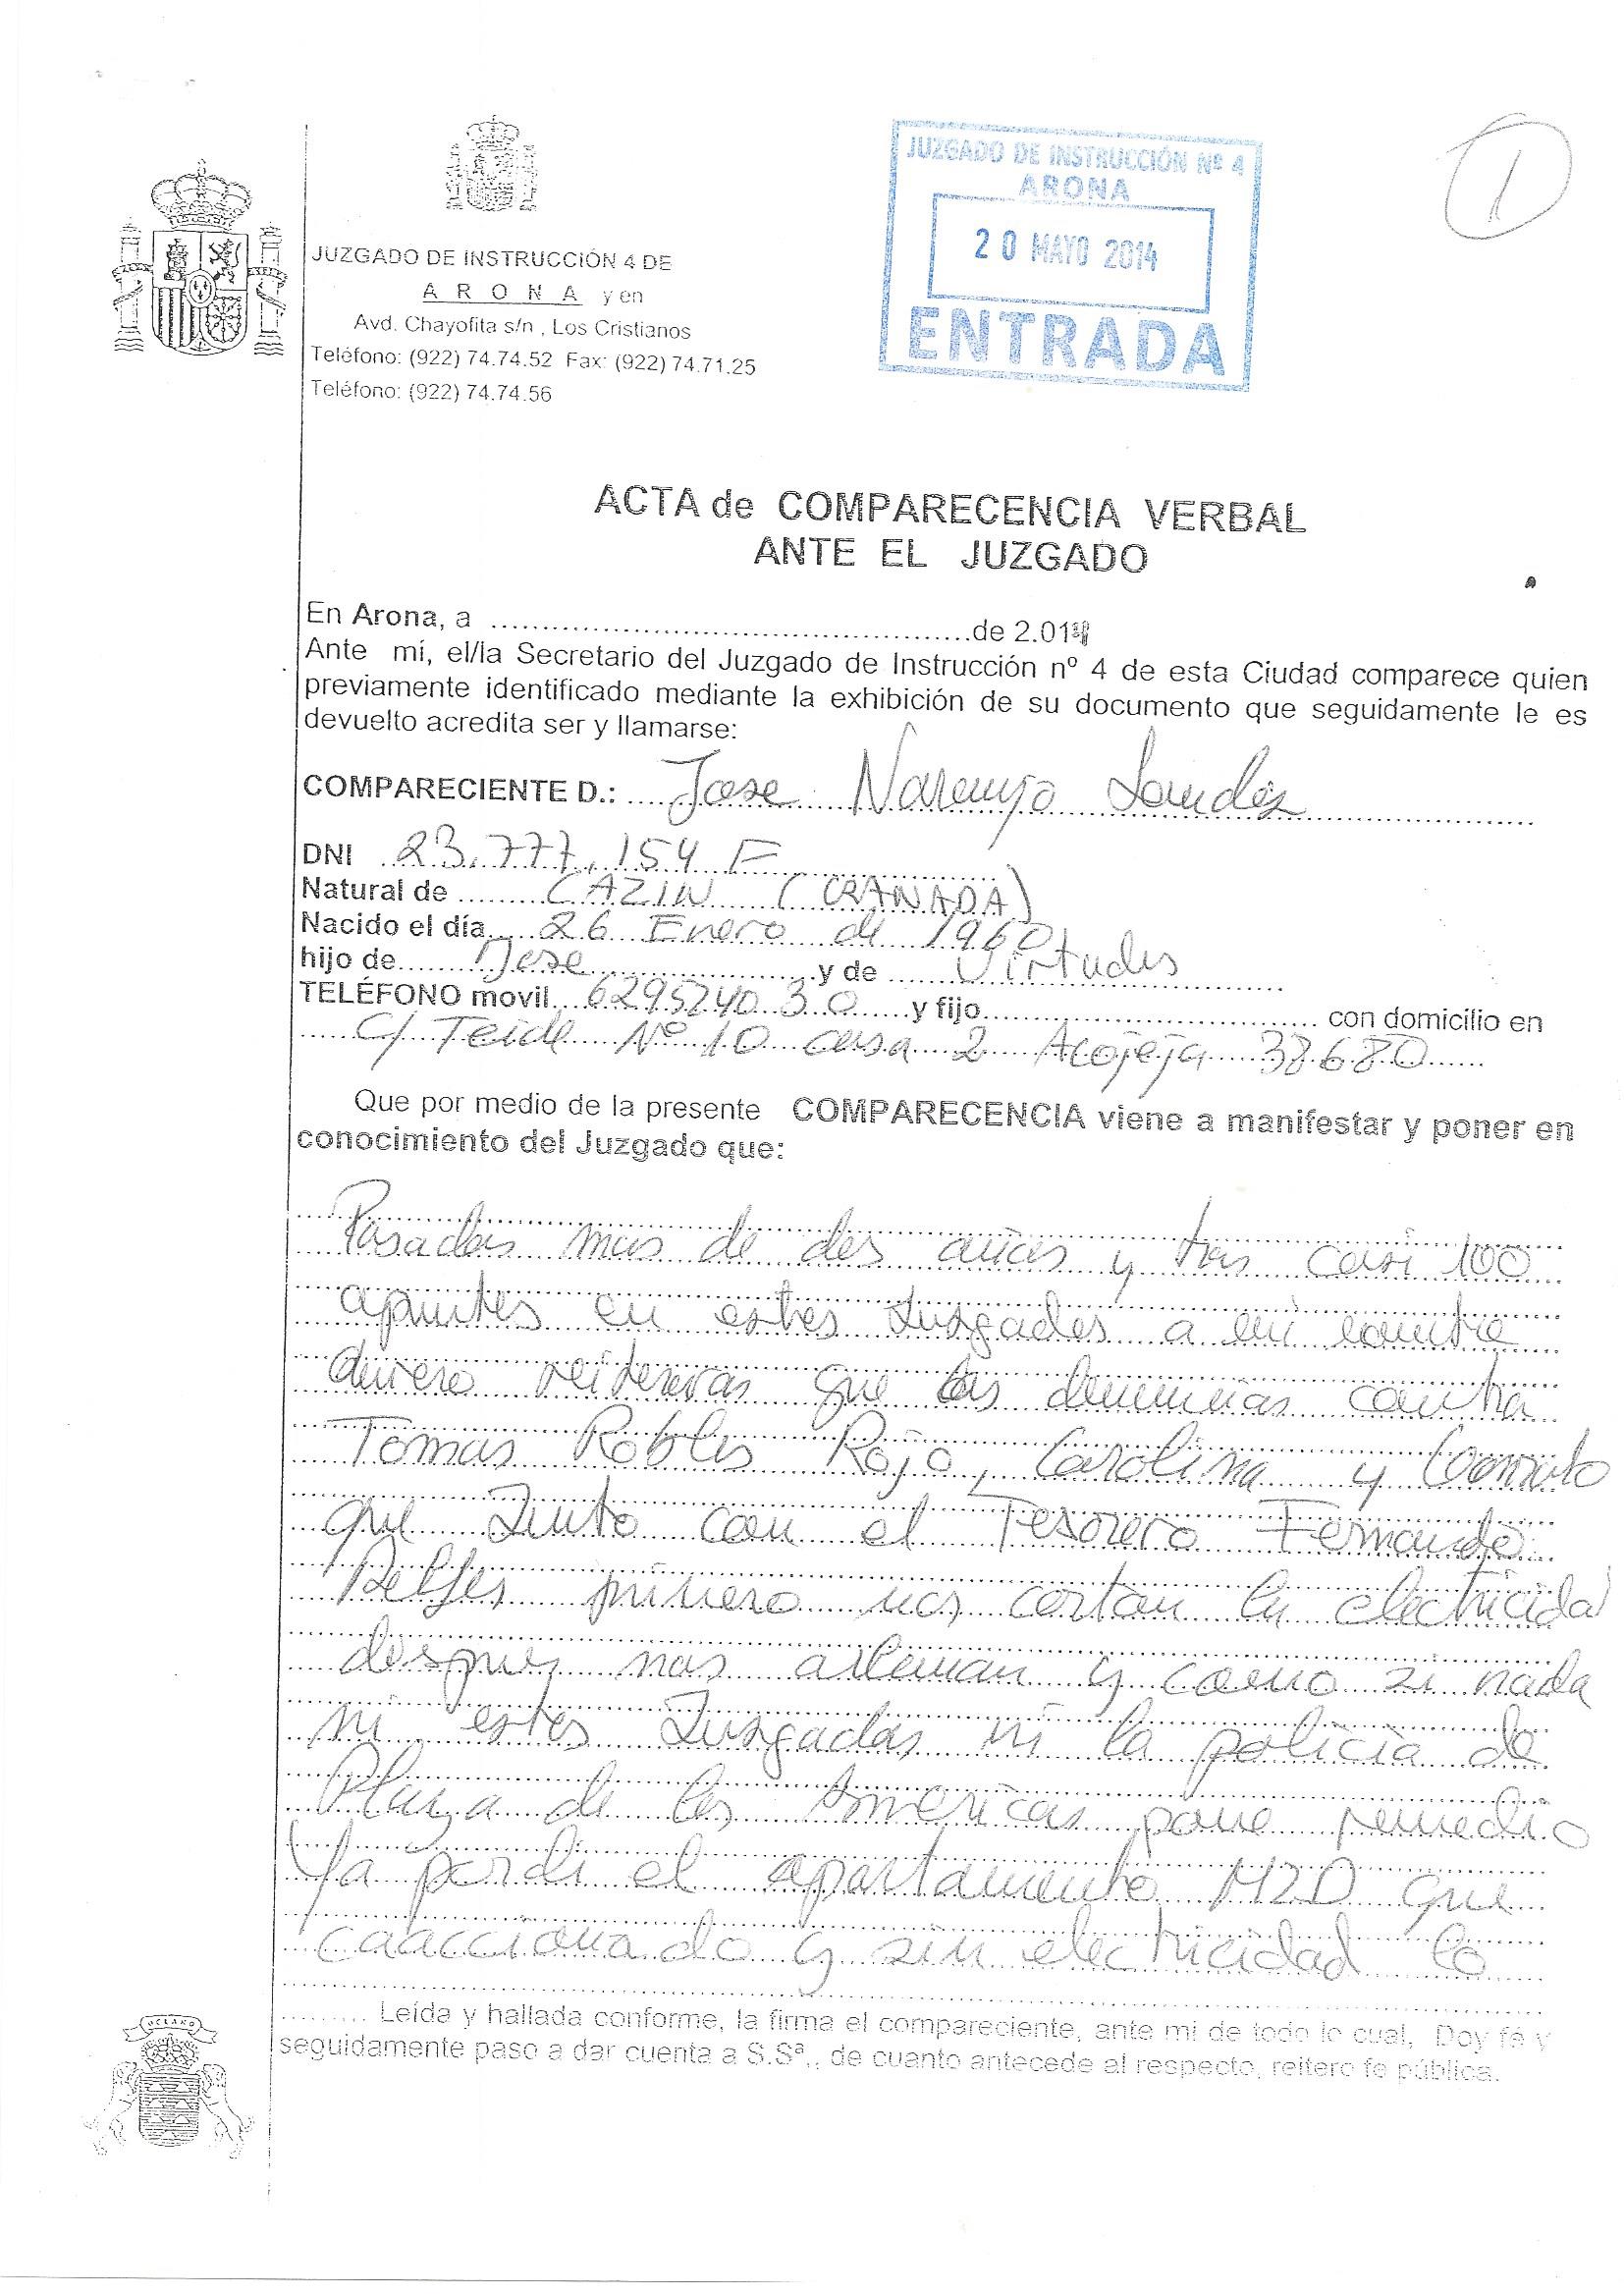 JUZGADO DE INSTRUCCIÓN Nº 4
ARONA
20 MAYO 2014
ENTRADA
1
JUZGADO DE INSTRUCCIÓN 4 DE
A R O N A y en
Avd. Chayofita s/n , Los Cristianos
Teléfono: (922) 74.74.52 Fax: (922) 74.71.25
Teléfono: (922) 74.74.56
ACTA de COMPARECENCIA VERBAL
ANTE EL JUZGADO
En Arona, a ................................................de 2.014
Ante mí, el/la Secretario del Juzgado de Instrucción nº 4 de esta Ciudad comparece quien
previamente identificado mediante la exhibición de su documento que seguidamente le es
devuelto acredita ser y llamarse:
COMPARECIENTE D.: Jose Naranjo
DNI 23.777.154 F
Natural de CAZIN (GRANADA)
Nacido el día 26 Enero de 1960
hijo de Jose y de Virtudes
TELÉFONO movil 629524030 y fijo con domicilio en
C/ Teide Nº 10 casa 2 Acojeja 38680
Que por medio de la presente COMPARECENCIA viene a manifestar y poner en
conocimiento del Juzgado que:
Pasados mas de dos años y tras casi 100
apuntes en estos Juzgados a mi nombre
que las denuncias contra
Tomas Robles Rojo, Carolina y
que Junto con el Tesorero Fernando
primero nos cortan la electricidad
despues nos y como si nada
ni estos Juzgados ni la policia de
Playa de las Americas pone remedio
Ya perdi el apartamento M2D que
coaccionado y sin electricidad lo
Leída y hallada conforme, la firma el compareciente, ante mi de todo lo cual, Doy fé y
seguidamente paso a dar cuenta a S.Sª., de cuanto antecede al respecto, reitero fe pública.